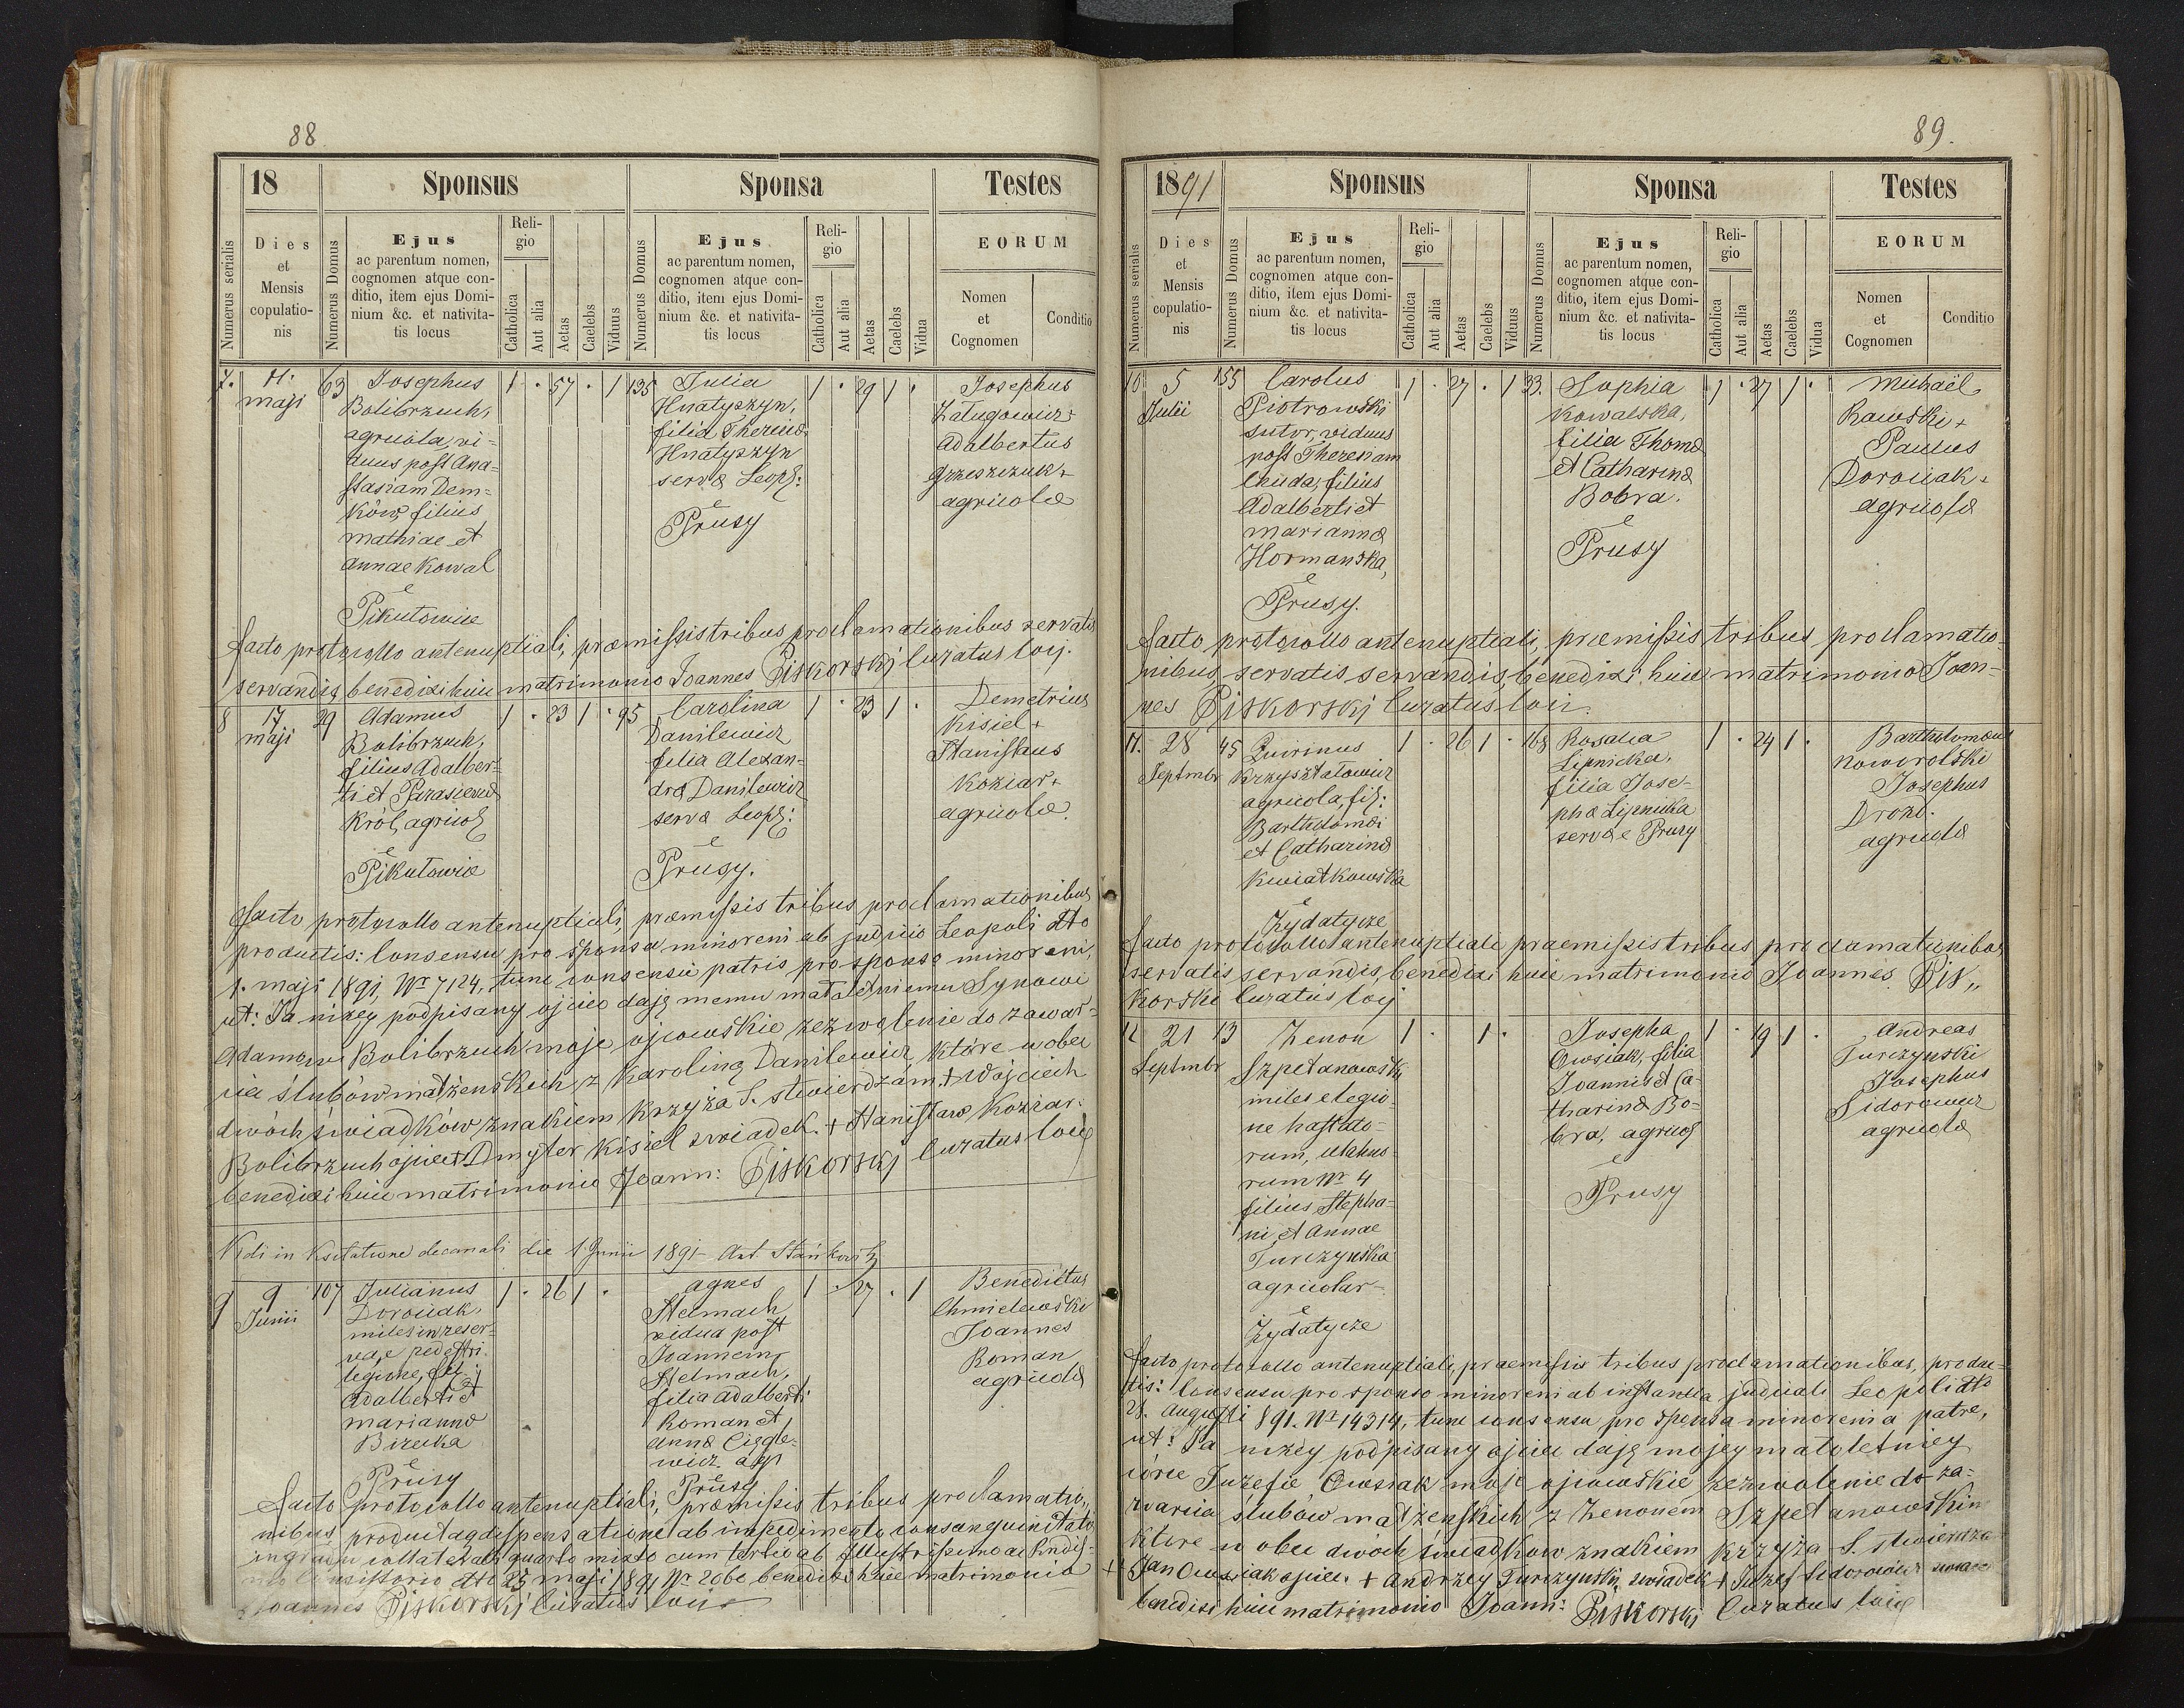 88
18
Sponsus
Sponsa
Testes
Numerus serialis
Dies
et
Mensis
copulatio-
nis
Numerus Domus
Ejus
ac parentum nomen,
cognomen atque con-
ditio, item ejus Domi-
nium &c. et nativita-
tis locus
Reli-
gio
Catholica
Aut alia
Aetas
Caelebs
Viduus
Numerus Domus
Ejus
ac parentum nomen,
cognomen atque con-
ditio, item ejus Domi-
nium &c. et nativita-
tis locus
Reli-
gio
Catholica
Aut alia
Aetas
Caelebs
Vidua
EORUM
Nomen
et
Cognomen
Conditio
7.
11.
maji
63
Josephus
Bolibrzuch,
agricola, vi-
duus post Ana-
stasiam Dem-
ków, filius
Mathiae et
Annae Kowal
è
Pikutowice
1 . 57 . 1
135
Julia
Hnatyszyn,
filia Theresiæ
Hnatyszyn
servæ Leopl:
è
Prusy
1 . 29 1 .
Josephus
Załugowicz+
Adalbertus
Grzeszczuk+
agricolæ
Facto protocollo antenuptiali, præmissis tribus proclamationibus servatis
servandis, benedixi huic matrimonio Joannes Piskorski Curatus loci.
8
17
maji
29
Adamus
Bolibrzuch,
filius Adalber-
ti et Parasceviæ
Król, agricol
è
Pikutowice
1 . 23 1 .
95
Carolina
Danilewicz
filia Alexan-
dræ Danilewicz
servæ Leopl:
è
Prusy.
1 . 23 1 .
Demetrius
Kisiel+
Stanislaus
Koziar+
agricolæ.
Facto protocollo antenuptiali, præmissis tribus proclamationibus
productis: Consensu pro sponsa minoreni ab judicio Leopoli dto
1. maji 1891, Nr 7124, tunc consensu patris pro sponso minoreni,
ut: Ja niżey podpisany ojciec daję memu małoletniemu Synowi
Adamowi Bolibrzuch moje ojcowskie zezwolenie do zawar-
cia ślubów małżeńskich z Karoliną Danilewicz, które w obec
dwóch świadków znakiem Krzyża S. stwierdzam. + Wojciech
Bolibrzuch ojciec + Dmyter Kisiel świadek. + Stanisław Koziar.
benedixi huic matrimonio Joann: Piskorski Curatus loci
Vidi in Visitatione decanali die 1 Junii 1891 Ant. Stańkowski
9
9
Junii
107
Julianus
Dorociak,
miles in reser-
va, e pedestri
legione, fil:
Adalberti et
Mariannæ
Bizecka
è
Prusy
1 . 26 1 .
Agnes
Stelmach
vidua post
Joannem
Stelmach,
filia Adalberti
Roman et
Annæ Ciągle-
wicz. agr
è
Prusy
1 . 27 . 1
Benedictus
Chmielewski
Joannes
Roman
agricolæ
Facto protocollo antenuptiali, præmissis tribus proclamatio-
nibus, productaq dispensatione ab impedimento consanguinitatis
in gradu collaterali quarto mixto cum tertio ab Illustrissimo ac Rndis-
mo Consistorio dto 23 maji 1891 Nr 2060 benedixi huic matrimonio
Joannes Piskorski Curatus loci
89.
1891
Sponsus
Sponsa
Testes
Numerus serialis
Dies
et
Mensis
copulatio-
nis
Numerus Domus
Ejus
ac parentum nomen,
cognomen atque con-
ditio, item ejus Domi-
nium &c. et nativita-
tis locus
Reli-
gio
Catholica
Aut alia
Aetas
Caelebs
Viduus
Numerus Domus
Ejus
ac parentum nomen,
cognomen atque con-
ditio, item ejus Domi-
nium &c. et nativita-
tis locus
Reli-
gio
Catholica
Aut alia
Aetas
Caelebs
Vidua
EORUM
Nomen
et
Cognomen
Conditio
10
5
Julii
155
Carolus
Piotrowski
sutor, viduus
post Theresiam
Chuda, filius
Adalberti et
Mariannæ
Hormanska,
è
Prusy.
1 . 27 . 1
33.
Sophia
Kowalska,
filia Thomæ
et Catharinæ
Bobra.
è
Prusy
1 . 27 1 .
Michaël
Rawski+
Paulus
Dorociak+
agricolæ
Facto protocollo antenuptiali, præmissis tribus proclamatio-
nibus, servatis servandis, benedixi huic matrimonio Joan-
nes Piskorski Curatus loci.
11.
28
Septmbr
45
Quirinus
Krzyształowicz
agricola, fil:
Bartholomæi
et Catharinæ
Kwiatkowska
è
Żydatycze
1 . 26 1 .
168
Rosalia
Lipnicka,
filia Jose-
phæ Lipnicka
servæ e Prusy
1 . 24 1 .
Bartholomæus
Noworolski
Josephus
Drozd.
agricolæ
Facto protocollo antenuptiali praemissis tribus proclamationibus,
servatis servandis, benedixi huic matrimonio Joannes Pis„
korski Curatus loci
12
21
Septmbr
13
Zenon
Szpetanowski,
miles e legio-
ne hastato-
rum, ulahno-
rum Nr 4
filius Stepha-
ni, et Annae
Turczynska
agricolar-
è
Żydatycze
1 . 1 .
Josepha
Owsiak, filia
Joannis et Ca-
tharinæ Bo-
bra, agricol
è
Prusy
1 . 19 1 .
Andreas
Turczynski
Josephus
Sidorowicz
agricolæ
Facto protocollo antenuptiali, praemissis tribus proclamationibus, produc-
tis: Consensu pro sponso minoreni ab instantia judiciali Leopoli dto
28. Augusti 891. Nr 14314, tunc consensu pro sponsa minorenia patre,
ut: Ja niżey podpisany ojciec daję mojey małoletniey
córce Józefie Owsiak moje ojcowskie zezwolenie do za-
warcia ślubów małżeńskich z Zenonem Szpetanowskim
które w obec dwóch świadków znakiem Krzyża S. stwierdza
+ Jan Owsiak ojciec. + Andrzey Turczynski, świadek + Józef Sidorowicz świadek
benedixi huic matrimonio Joann: Piskorski Curatus loci